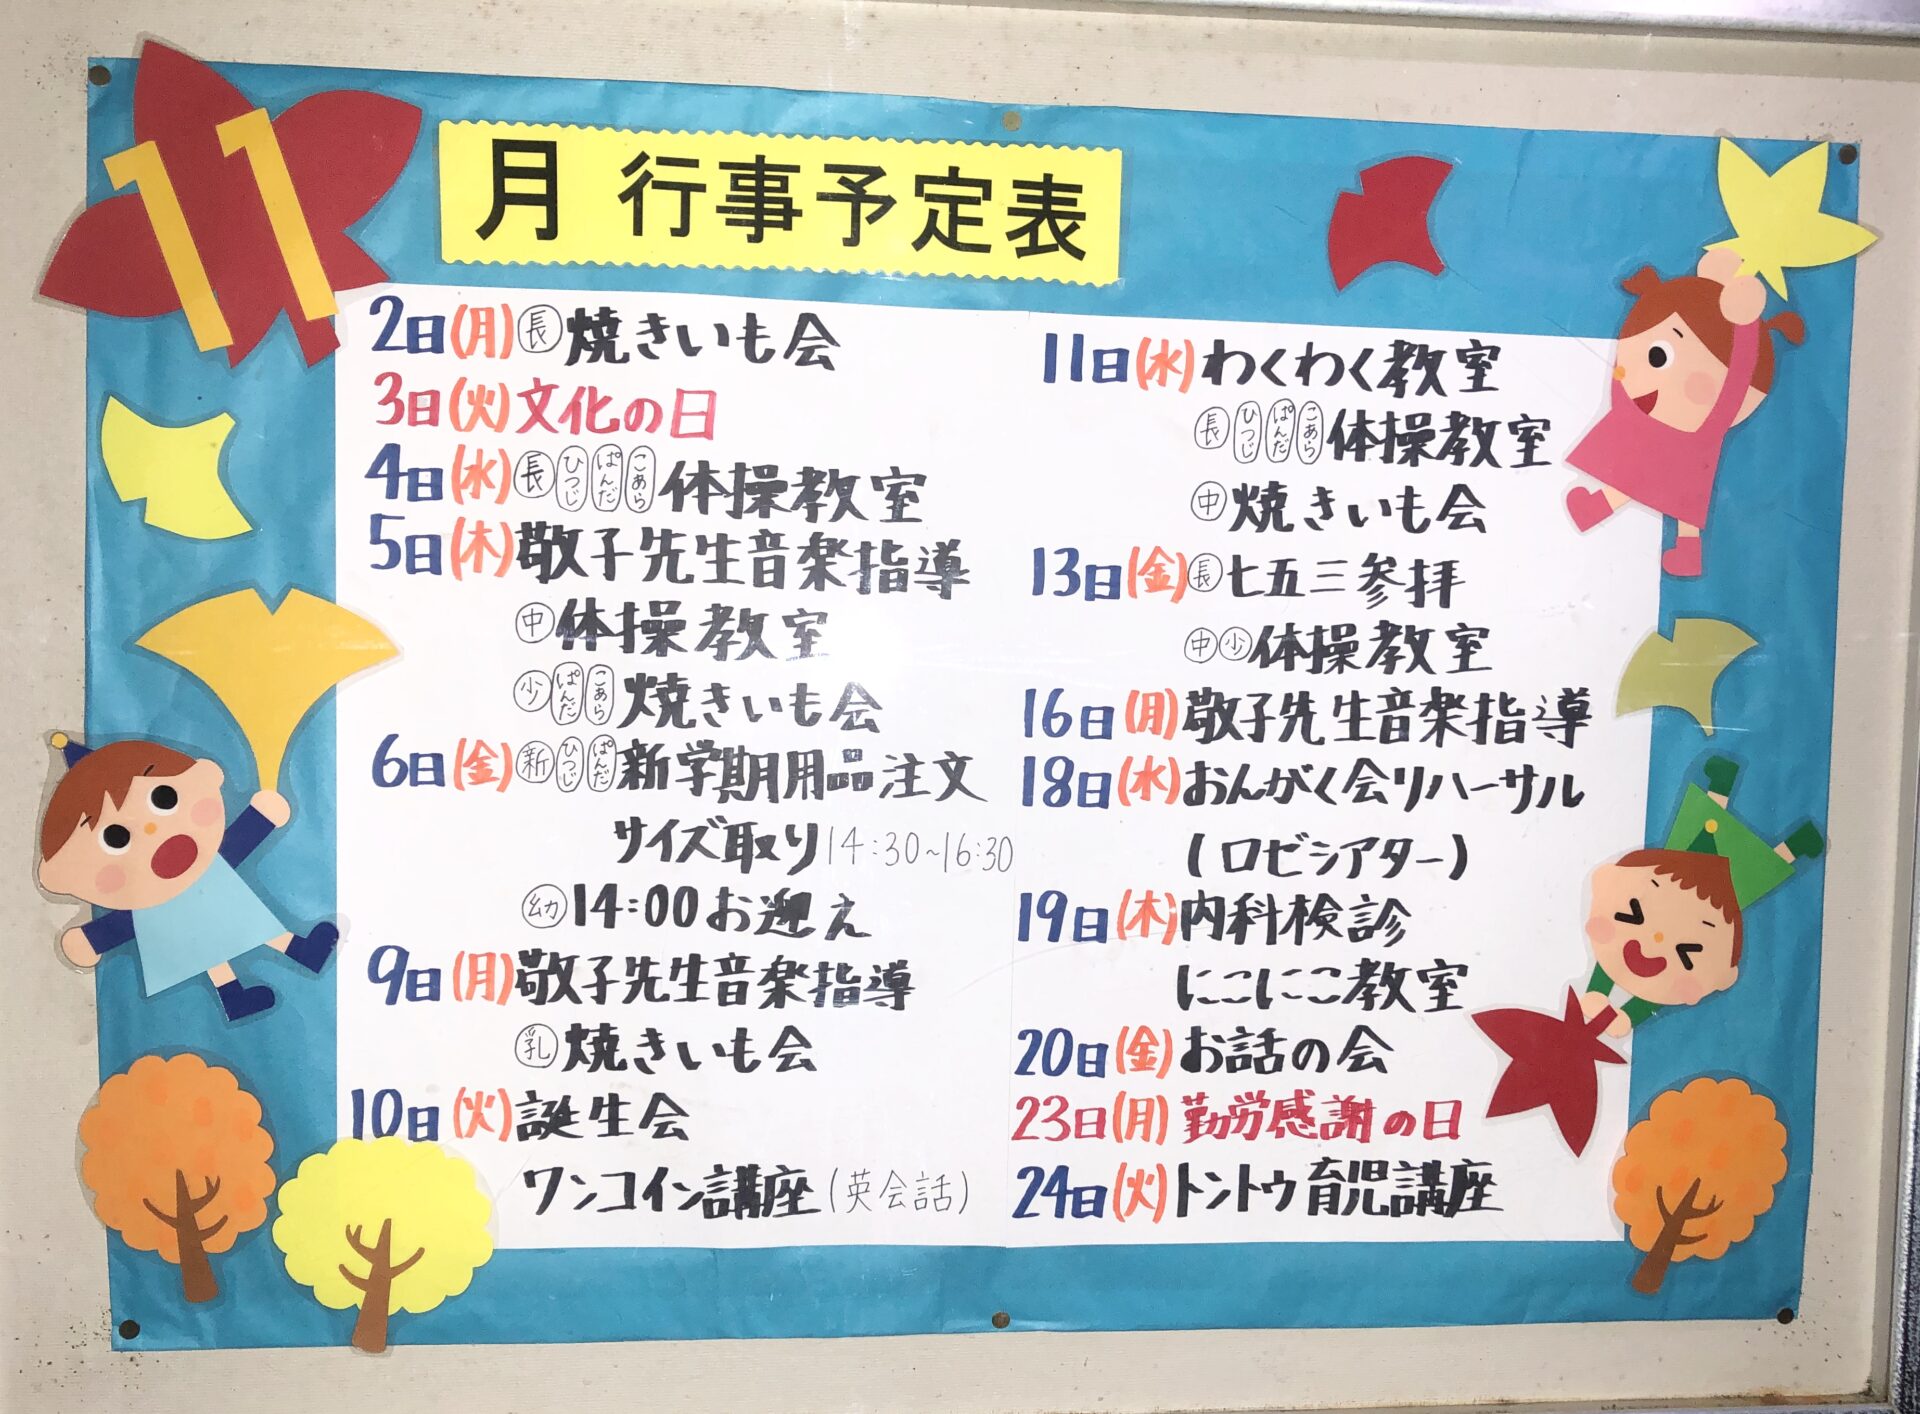 11月 行事予定表
2日(月)長焼きいも会
3日(火)文化の日
4日(水)長ひつじぱんだこあら体操教室
5日(木)敬子先生音楽指導
中体操教室
少ぱんだこあら焼きいも会
6日(金)新ひつじぱんだ新学期用品注文
サイズ取り14:30~16:30
幼14:00お迎え
9日(月)敬子先生音楽指導
乳焼きいも会
10日(火)誕生会
ワンコイン講座(英会話)
11日(水)わくわく教室
長ひつじぱんだこあら体操教室
中焼きいも会
13日(金)長七五三参拝
中少体操教室
16日(月)敬子先生音楽指導
18日(水)おんがく会リハーサル
(ロゼシアター)
19日(木)内科検診
にこにこ教室
20日(金)お話の会
23日(月)勤労感謝の日
24日(火)トントゥ育児講座